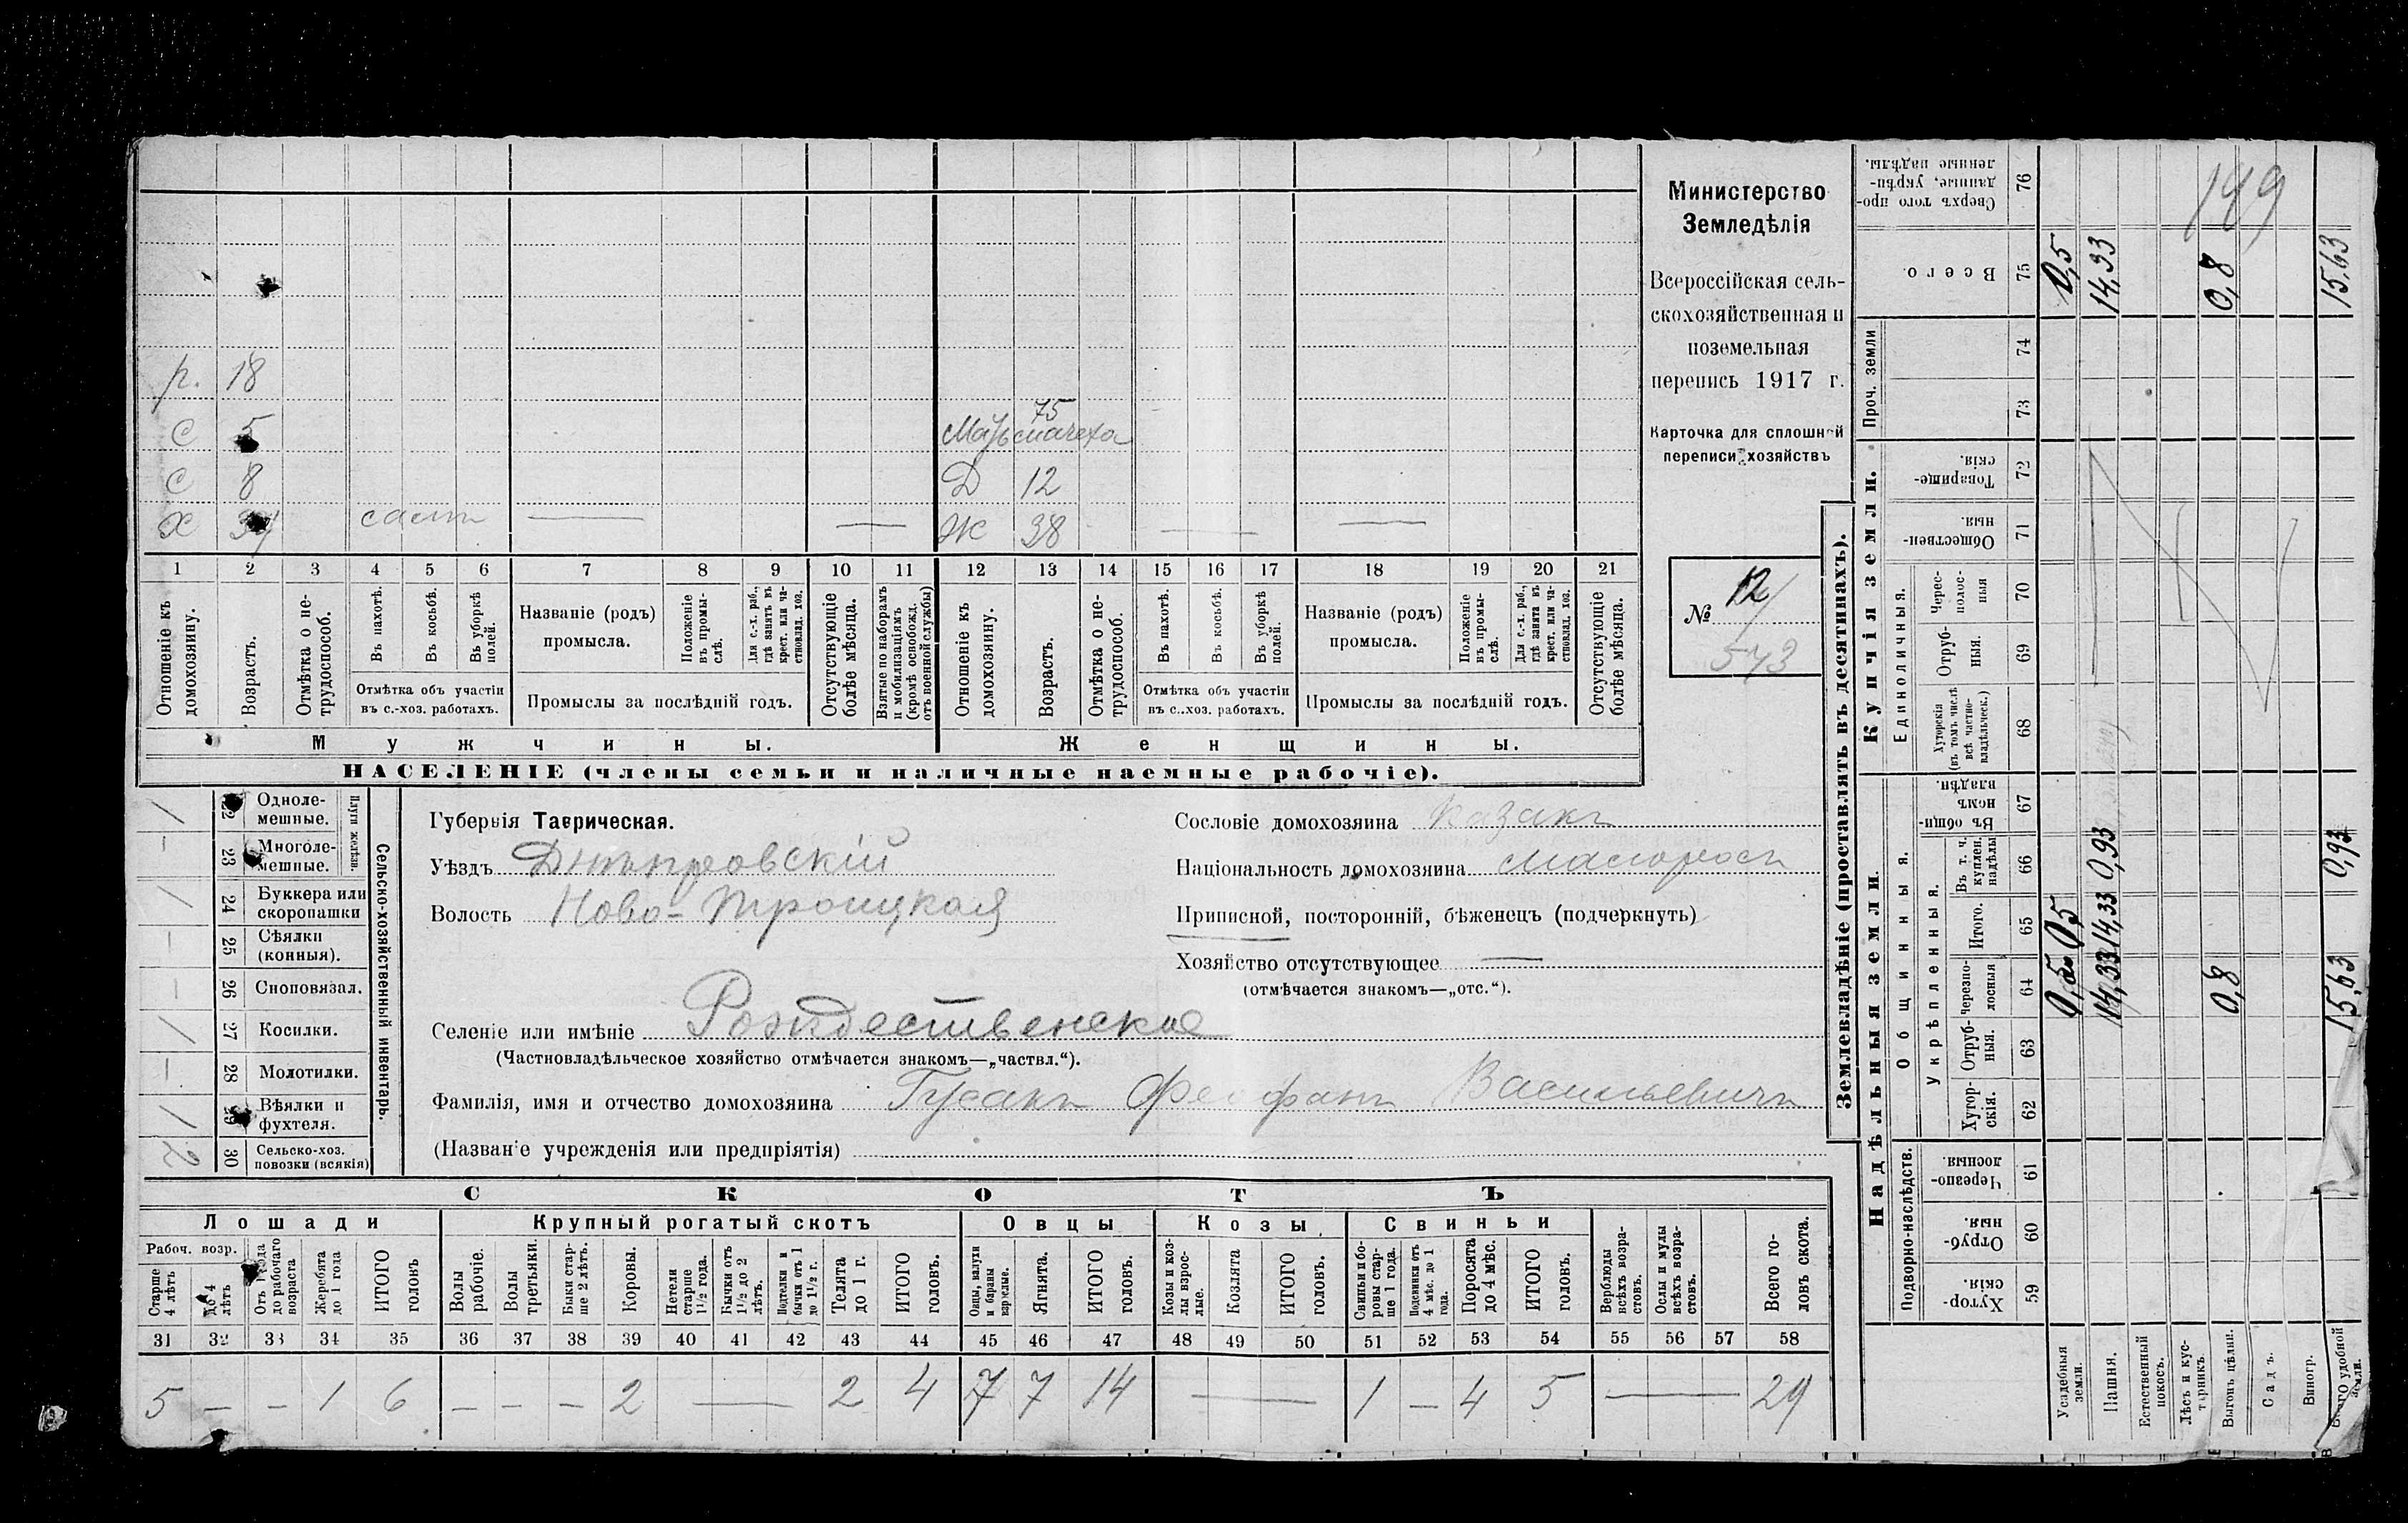 р. 18
С 5
75
Мать мачеха
С 8
Д 12
Х сам — —
Ж 38 — —
1 2 3 4 5 6 7 8 9 10 11 12 13 14 15 16 17 18 19 20 21
Отношеніе къ домохозяину.
Возрастъ.
Отмѣтка о нетрудоспособ.
Въ пахотѣ.
Въ косьбѣ.
Въ уборкѣ полей.
Отмѣтка объ участіи
въ с.-хоз. работахъ.
Названіе (родъ)
промысла.
Положеніе въ промыслѣ.
Для с.-х. раб., гдѣ занятъ въ крест. или частновлад. хоз.
Промыслы за послѣдній годъ.
Отсутствующіе болѣе мѣсяца.
Взятые по наборамъ и мобилизаціямъ (кромѣ освобожд. отъ военной службы)
Отношеніе къ домохозяину.
Возрастъ.
Отмѣтка о нетрудоспособ.
Въ пахотѣ.
Въ косьбѣ.
Въ уборкѣ полей.
Отмѣтка объ участіи
въ с.-хоз. работахъ.
Названіе (родъ)
промысла.
Положеніе въ промыслѣ.
Для с.-х. раб., гдѣ занята въ крест. или частновлад. хоз.
Промыслы за послѣдній годъ.
Отсутствующіе болѣе мѣсяца.
Мужчины. Женщины.
НАСЕЛЕНІЕ (члены семьи и наличные наемные рабочіе).
Министерство
Земледѣлія
Всероссійская сель-
скохозяйственная и
поземельная
перепись 1917 г.
Карточка для сплошной
переписи хозяйствъ
№ 12
573
Сельско-хозяйственный инвентарь.
Плуги желѣзн.
/ 22 Одноле-
мешные.
— 23 Многоле-
мешные.
/ 24 Буккера или
скоропашки
— 25 Сѣялки
(конныя).
— 26 Сноповязал.
/ 27 Косилки.
— 28 Молотилки.
/ 29 Вѣялки и
фухтеля.
2 30 Сельско-хоз.
повозки (всякія)
Губернія Таврическая.
Уѣздъ Днѣпровскій
Волость Ново-Троицкая
Селеніе или имѣніе Рождественское
(Частновладѣльческое хозяйство отмѣчается знакомъ—„частвл.“).
Фамилія, имя и отчество домохозяина Гусакъ Феофанъ Васильевичъ
(Названіе учрежденія или предпріятія)
Сословіе домохозяина Казакъ
Національность домохозяина малоросъ
Приписной, посторонній, бѣженецъ (подчеркнуть)
Хозяйство отсутствующее —
(отмѣчается знакомъ—„отс.“).
СКОТЪ
Лошади Крупный рогатый скотъ Овцы Козы Свиньи
Рабоч. возр.
Старше 4 лѣтъ
до 4 лѣтъ
Отъ 1 года до рабочаго возраста
Жеребята до 1 года
ИТОГО головъ
Волы рабочіе.
Волы третьяки.
Быки старше 2 лѣтъ.
Коровы.
Нетели старше 1½ года.
Бычки отъ 1½ до 2 лѣтъ.
Подтелки и бычки отъ 1 до 1½ г.
Телята до 1 г.
ИТОГО головъ.
Овцы, валухи и бараны взрослые.
Ягнята.
ИТОГО головъ.
Козы и козлы взрослые.
Козлята
ИТОГО головъ.
Свиньи и боровы старше 1 года.
Подсвинки отъ 4 мѣс. до 1 года.
Поросята до 4 мѣс.
ИТОГО головъ.
Верблюды всѣхъ возрастовъ.
Ослы и мулы всѣхъ возрастовъ.
Всего головъ скота.
31 32 33 34 35 36 37 38 39 40 41 42 43 44 45 46 47 48 49 50 51 52 53 54 55 56 57 58
5 — — 1 6 — — — 2 — 2 4 7 7 14 — 1 — 4 5 — 29
Землевладѣніе (проставлять въ десятинахъ).
Надѣльныя земли. Купчія земли. Проч. земли
Подворно-наслѣдств. Общинныя. Единоличныя.
Укрѣпленныя.
Хуторскія. 59
Отрубныя. 60
Черезполосныя. 61
Хуторскія. 62
Отрубныя. 63
Черезполосныя 64
Итого. 65
Въ т. ч. куплен. надѣлы 66
Въ общинномъ владѣн. 67
Хуторскія (въ томъ числѣ всѣ частновладѣльческ.) 68
Отрубныя. 69
Черезполосныя 70
Общественныя. 71
Товарищескія. 72
73
74
Всего. 75
Сверхъ того проданные, укрѣпленные надѣлы. 76
149
Усадебныя земли. 0,5 0,5 0,5
Пашня. 14,33 14,33 0,93 14,33
Естественный покосъ.
Лѣсъ и кустарникъ.
Выгонъ цѣлин. 0,8 0,8
Садъ.
Виногр.
Всего удобной земли. 15,63 0,93 15,63